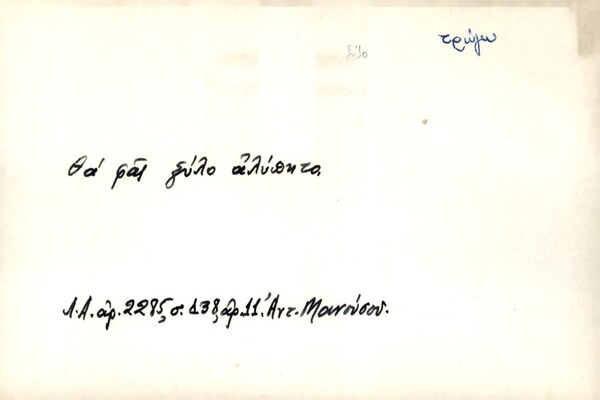 ξύλο
τρώγω
Θά φᾶς ξύλο ἀλύπητο.
Λ.Α. ἀρ. 2285, σ. 138, ἀρ. 11, Ἀντ. Μανούσου.